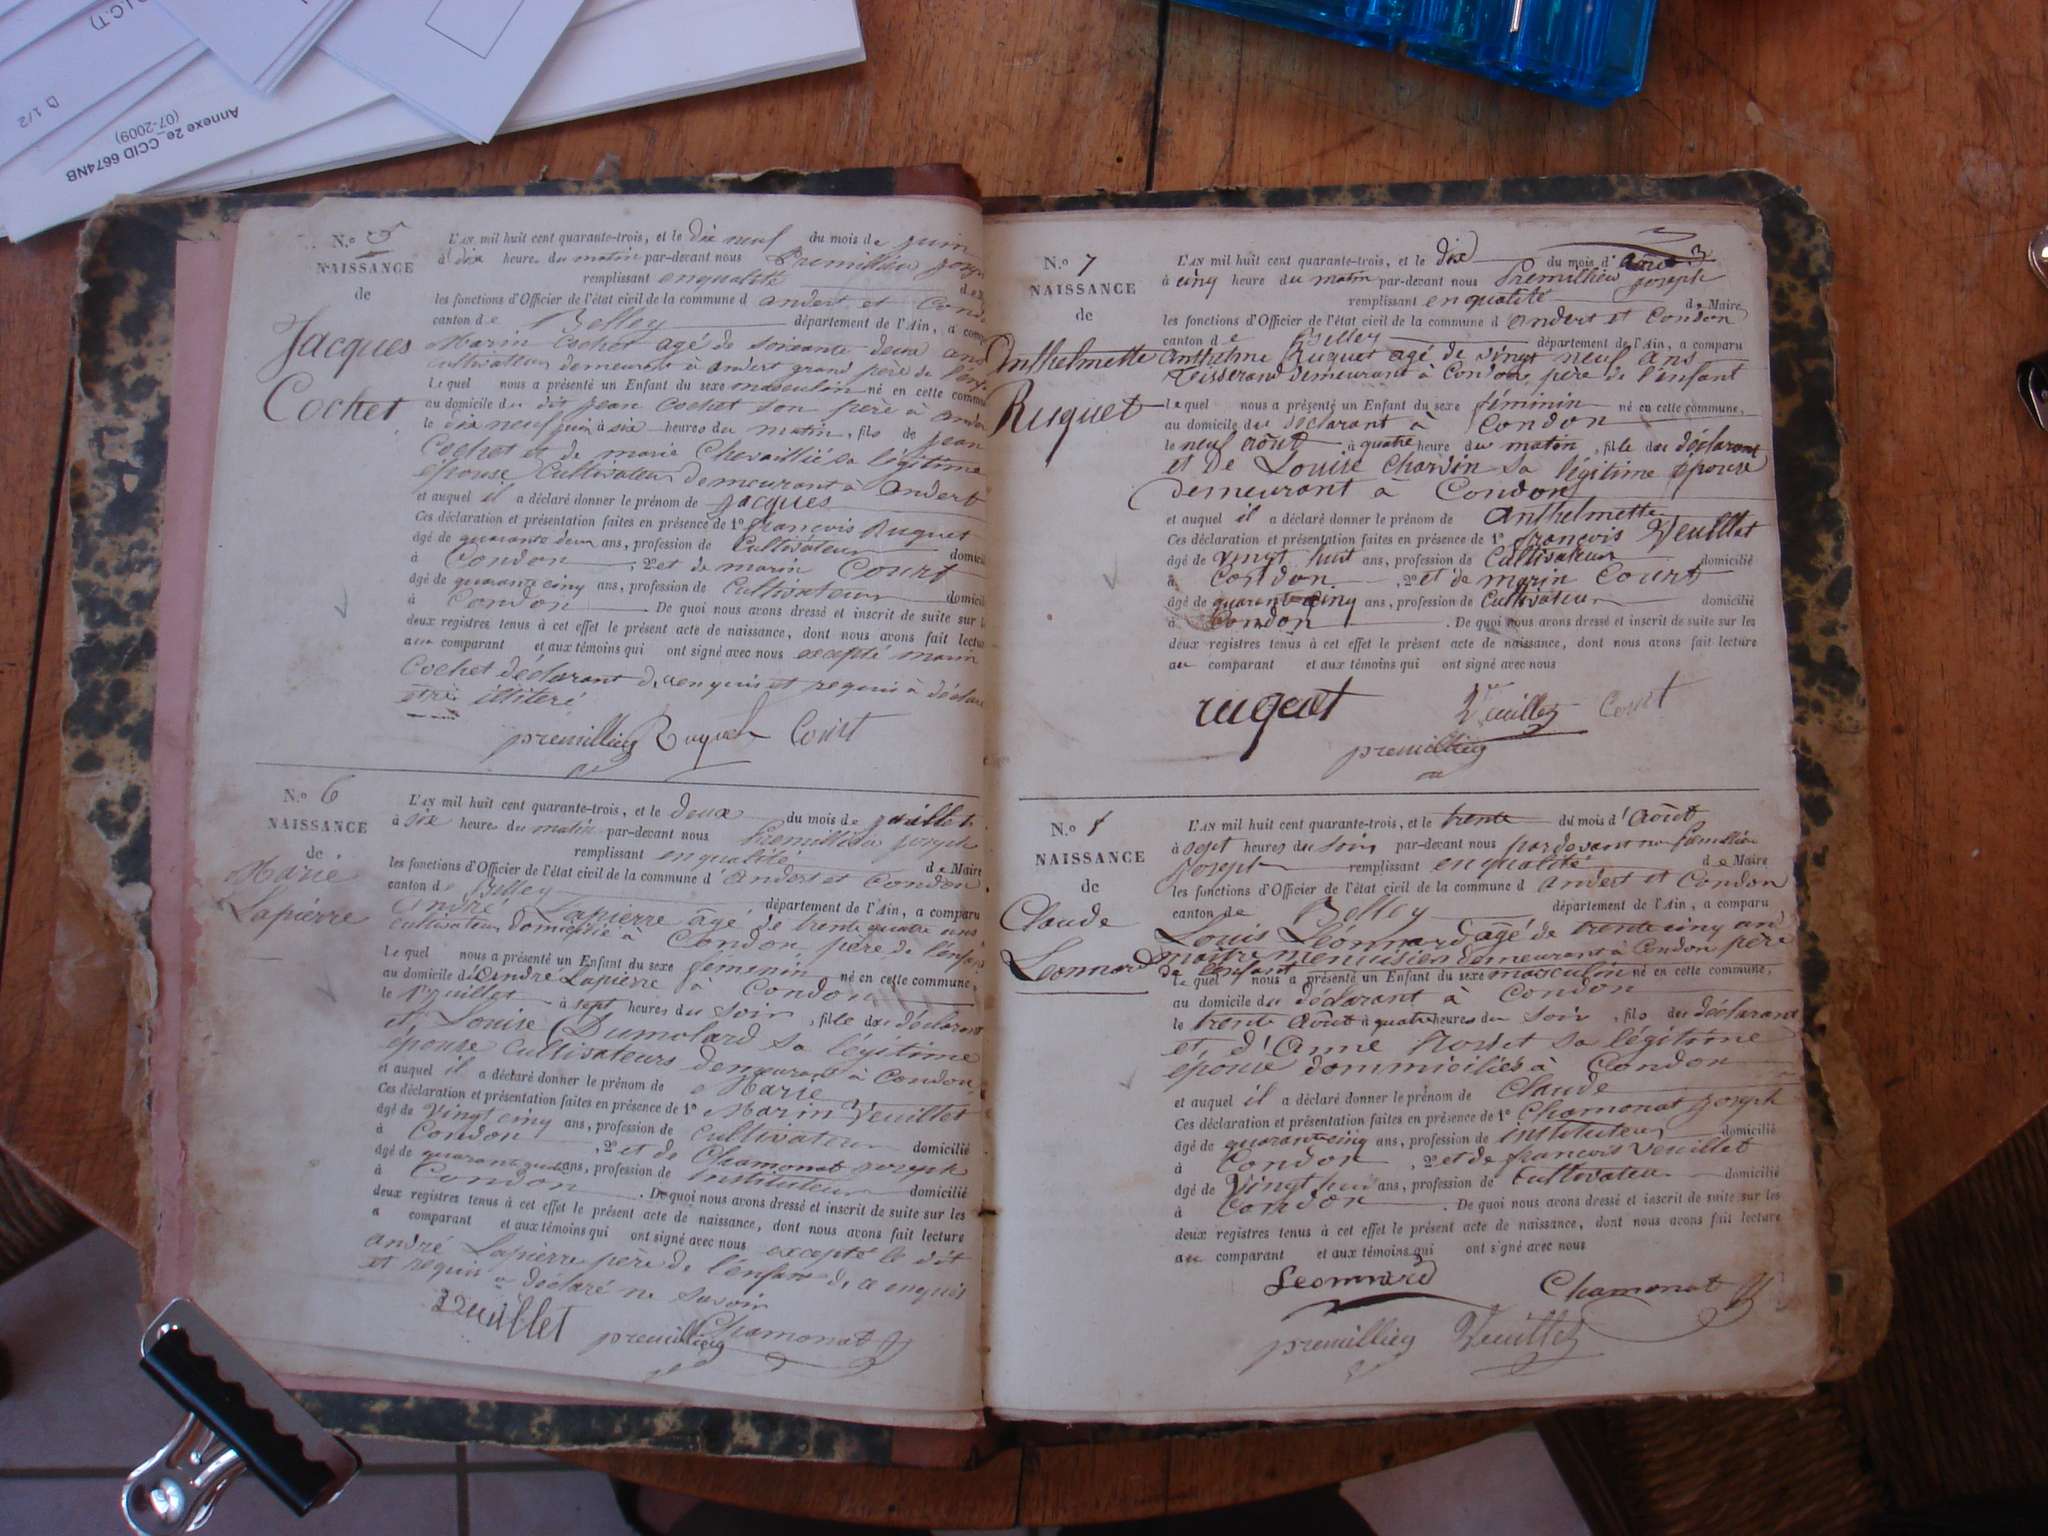 D 1/2
Annexe 2e_CCID 6674NB
(07-2009)
N.o 5
NAISSANCE
de
Jacques
Cochet
L'AN mil huit cent quarante-trois, et le dix neuf du mois de juin
à dix heures du matin par-devant nous Premillieu Joseph
remplissant en qualité de
les fonctions d'Officier de l'état civil de la commune d andert et Condon
canton de Belley département de l'Ain, a comp
Marin Cochet agé de soixante deux ans
cultivateur demeurant à andert grand père de l'enf
lequel nous a présenté un Enfant du sexe masculin né en cette commu
au domicile du dit jean Cochet son père à andert
le dix neuf juin à six heures du matin, fils de jean
Cochet et de marie Chevaillié sa légitime
épouse Cultivateur demeurant à andert
et auquel il a déclaré donner le prénom de jacques
Ces déclaration et présentation faites en présence de 1o françois Ruguet
âgé de quarante deux ans, profession de Cultivateur domicil
à Condon, 2o et de marin Court
âgé de quarante cinq ans, profession de Cultivateur domicili
à Condon. De quoi nous avons dressé et inscrit de suite sur l
deux registres tenus à cet effet le présent acte de naissance, dont nous avons fait lectu
au comparant et aux témoins qui ont signé avec nous excepté marin
Cochet déclarant de ce enquis et requis a déclaré
être illiteré
premillieu Ruguet Court
N.o 6
NAISSANCE
de
Marie
Lapierre
L'AN mil huit cent quarante-trois, et le deux du mois de juillet
à six heures du matin par-devant nous Premillieu joseph
remplissant en qualité de Maire
les fonctions d'Officier de l'état civil de la commune d'andert et Condon
canton de Belley département de l'Ain, a comparu
André Lapierre âgé de trente quatre ans
cultivateur domicilié à Condon, père de l'enfant
lequel nous a présenté un Enfant du sexe féminin né en cette commune,
au domicile d'andré Lapierre à Condon
le 1er juillet à sept heures du soir, fille du déclarant
et Louise Dumolard sa légitime
épouse Cultivateurs demeurant à Condon
et auquel il a déclaré donner le prénom de Marie
Ces déclaration et présentation faites en présence de 1o Marin Veuillet
âgé de vingt cinq ans, profession de cultivateur
à Condon, 2o et de Chamonat joseph domicilié
âgé de ans, profession de instituteur
à Condon. De quoi nous avons dressé et inscrit de suite sur les domicilié
deux registres tenus à cet effet le présent acte de naissance, dont nous avons fait lecture
a comparant et aux témoins qui ont signé avec nous excepté le dit
andré Lapierre père de l'enfant de ce enquis
et requis a déclaré ne savoir
Veuillet premillieu Chamonat
N.o 7
NAISSANCE
de
Anthelmette
Ruguet
L'AN mil huit cent quarante-trois, et le dix du mois d'août
à cinq heure du matin par-devant nous Premillieu joseph
remplissant en qualité de Maire
les fonctions d'Officier de l'état civil de la commune d'andert et Condon
canton de Belley département de l'Ain, a comparu
anthelme Ruguet agé de vingt neuf ans
Tisserand demeurant à Condon, père de l'enfant
lequel nous a présenté un Enfant du sexe féminin né en cette commune,
au domicile du déclarant à Condon
le neuf août à quatre heure du matin, fille du déclarant
et de Louise Chardin sa légitime épouse
demeurant à Condon
et auquel il a déclaré donner le prénom de anthelmette
Ces déclaration et présentation faites en présence de 1o françois Veuillet
âgé de vingt huit ans, profession de Cultivateur domicilié
à Condon, 2o et de marin Court
âgé de quarante cinq ans, profession de Cultivateur domicilié
à Condon. De quoi nous avons dressé et inscrit de suite sur les
deux registres tenus à cet effet le présent acte de naissance, dont nous avons fait lecture
au comparant et aux témoins qui ont signé avec nous
ruguet Veuillet Court
premillieu
N.o 8
NAISSANCE
de
Claude
Leonnard
L'AN mil huit cent quarante-trois, et le trente du mois d'Août
à sept heures du soir par-devant nous pardevant nous Premillieu
Joseph remplissant en qualité de Maire
les fonctions d'Officier de l'état civil de la commune d andert et Condon
canton de Belley département de l'Ain, a comparu
Louis Léonnard agé de trente cinq ans
maître menuisier demeurant à Condon père
de l'enfant
lequel nous a présenté un Enfant du sexe masculin né en cette commune,
au domicile du déclarant à Condon
le trente Août à quatre heures du soir, fils du déclarant
et d'Anne sa légitime
épouse dommiciliés à Condon
et auquel il a déclaré donner le prénom de Claude
Ces déclaration et présentation faites en présence de 1o Chamonat joseph
âgé de quarante cinq ans, profession de instituteur domicilié
à Condon, 2o et de françois Veuillet
âgé de vingt huit ans, profession de Cultivateur domicilié
à Condon. De quoi nous avons dressé et inscrit de suite sur les
deux registres tenus à cet effet le présent acte de naissance, dont nous avons fait lecture
au comparant et aux témoins qui ont signé avec nous
Leonnard Chamonat
premillieu Veuillet